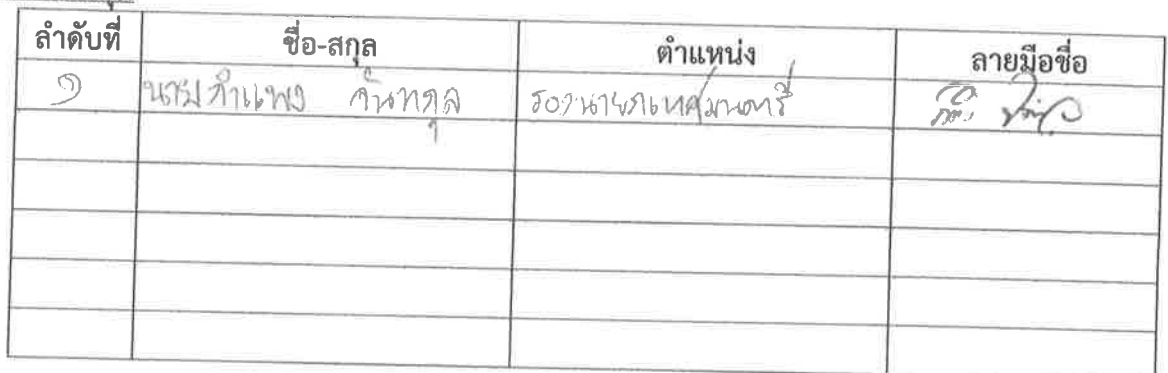 ลำดับที่ ชื่อ-สกุล ตำแหน่ง ลายมือชื่อ
๑ นายกำแพง จันทกุล รองนายกเทศมนตรี